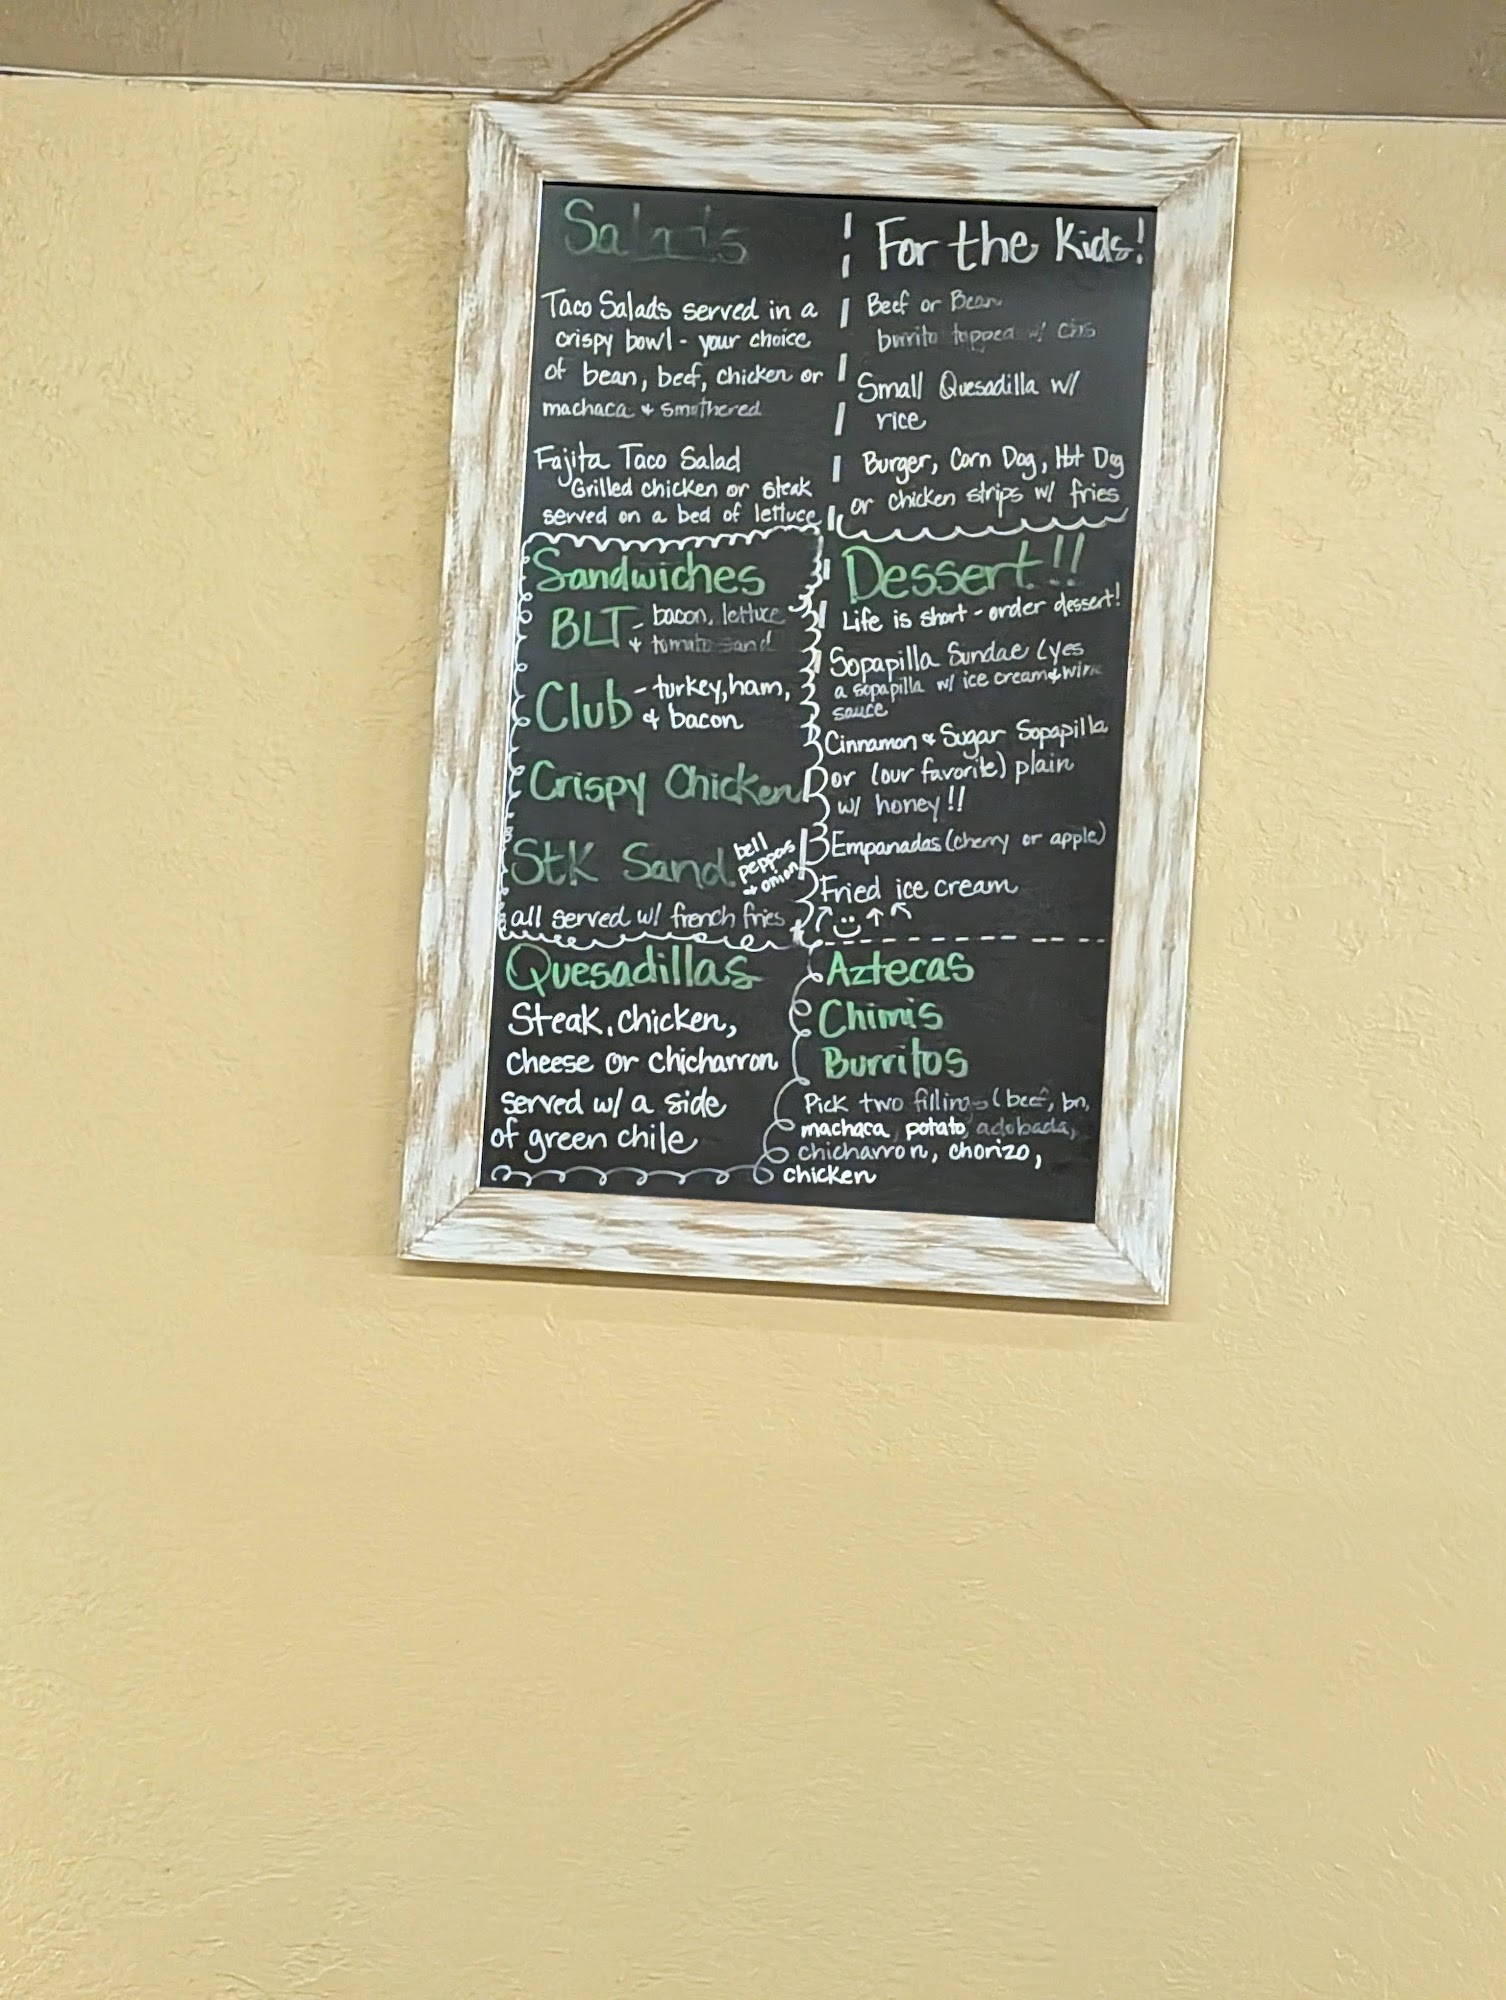 Salads
Taco Salads served in a
crispy bowl - your choice
of bean, beef, chicken or
machaca & smothered
Fajita Taco Salad
Grilled chicken or steak
served on a bed of lettuce
For the Kids!
Beef or Bean
burrito topped w/ chs
Small Quesadilla w/
rice
Burger, Corn Dog, Hot Dog
or chicken strips w/ fries
Sandwiches
BLT - bacon, lettuce
& tomato sand
Club - turkey, ham,
& bacon
Crispy Chicken
Stk Sand bell
peppers
& onion
all served w/ french fries
Dessert!!
Life is short - order dessert!
Sopapilla Sundae (yes
a sopapilla w/ ice cream &
sauce
Cinnamon & Sugar Sopapilla
or (our favorite) plain
w/ honey!!
Empanadas (cherry or apple)
Fried ice cream
Quesadillas
Steak, chicken,
cheese or chicharron
served w/ a side
of green chile
Aztecas
Chimis
Burritos
Pick two fillings (beef, bn,
machaca, potato, adobada,
chicharron, chorizo,
chicken